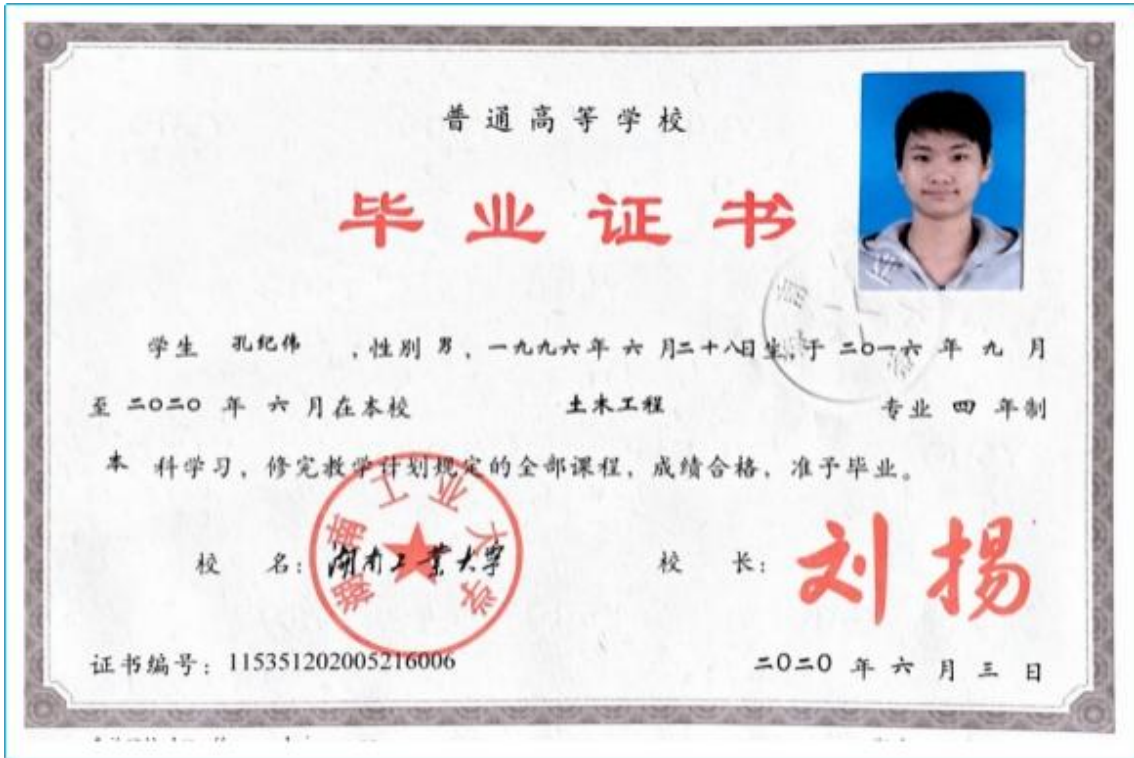 普通高等学校
毕业证书
学生 孔纪伟 ，性别 男，一九九六年 六 月二十八日生，于 二〇一六 年 九 月
至 二〇二〇 年 六 月在本校 土木工程 专业 四 年制
本 科学习，修完教学计划规定的全部课程，成绩合格，准予毕业。
校 名：湖南工业大学
湖南工业大学
校 长：刘扬
证书编号：115351202005216006
二〇二〇 年 六 月 三 日